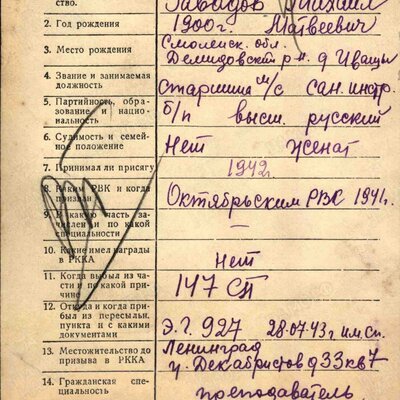 ство.
Михаил
2. Год рождения
1900г. Матвеевич
3. Место рождения
Смоленск. обл.
Демидовский р-н. д Иващы
4. Звание и занимаемая
должность
Старшина м/с сан. инстр.
5. Партийность, обра-
зование и нацио-
нальность
б/п высш. русский
6. Судимость и семей-
ное положение
Нет женат
7. Принимал ли присягу
1942.
8. Каким РВК и когда
призван
Октябрьским РВК 1941г.
9. В какую часть за-
числен и по какой
специальности
—
10. Какие имел награды
в РККА
нет
11. Когда выбыл из ча-
сти и по какой при-
чине
147 СП
12. Откуда и когда при-
был из пересыльн.
пункта и с какими
документами
Э.Г. 927 28.07.43г им.сп.
13. Местожительство до
призыва в РККА
Ленинград
у. Декабристов д 33 кв 7
14. Гражданская спе-
циальность
преподаватель